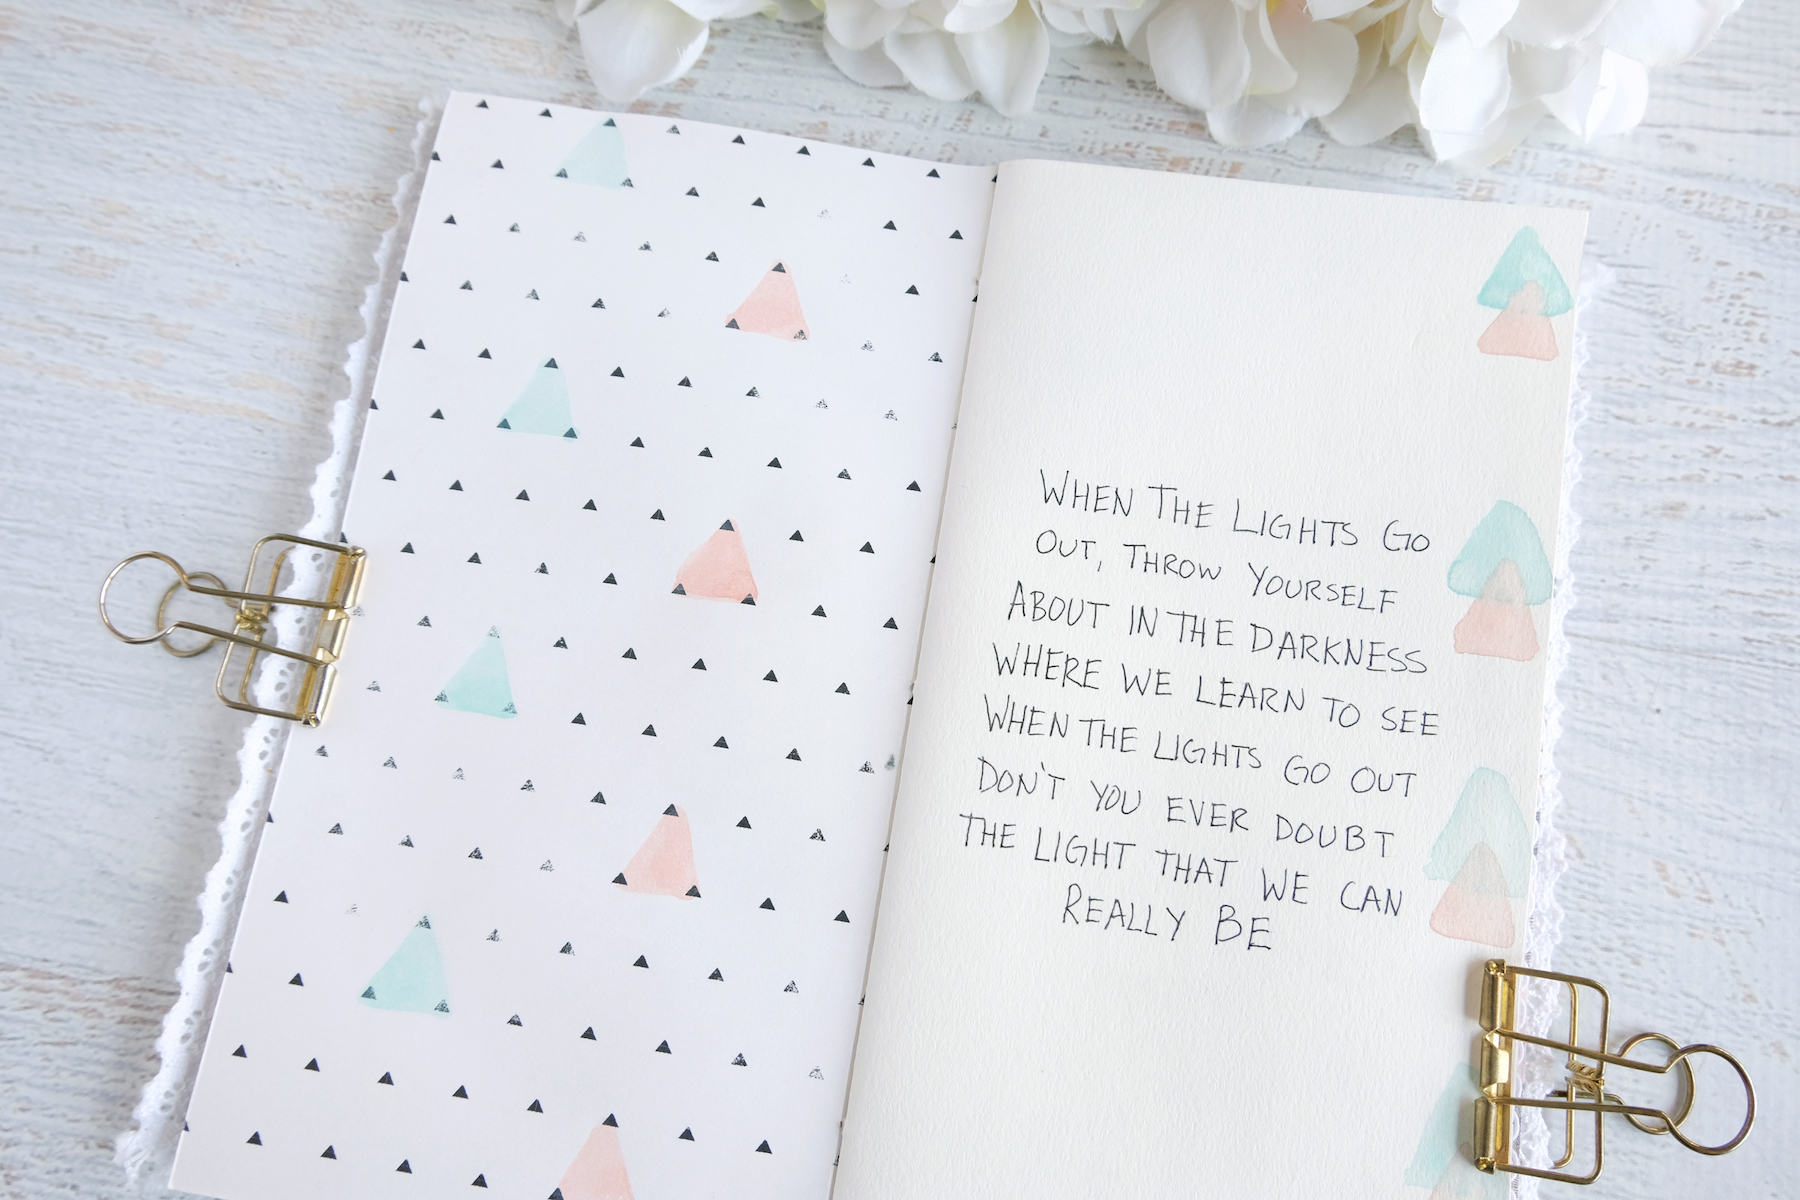 WHEN THE LIGHTS GO
OUT, THROW YOURSELF
ABOUT IN THE DARKNESS
WHERE WE LEARN TO SEE
WHEN THE LIGHTS GO OUT
DON'T YOU EVER DOUBT
THE LIGHT THAT WE CAN
REALLY BE